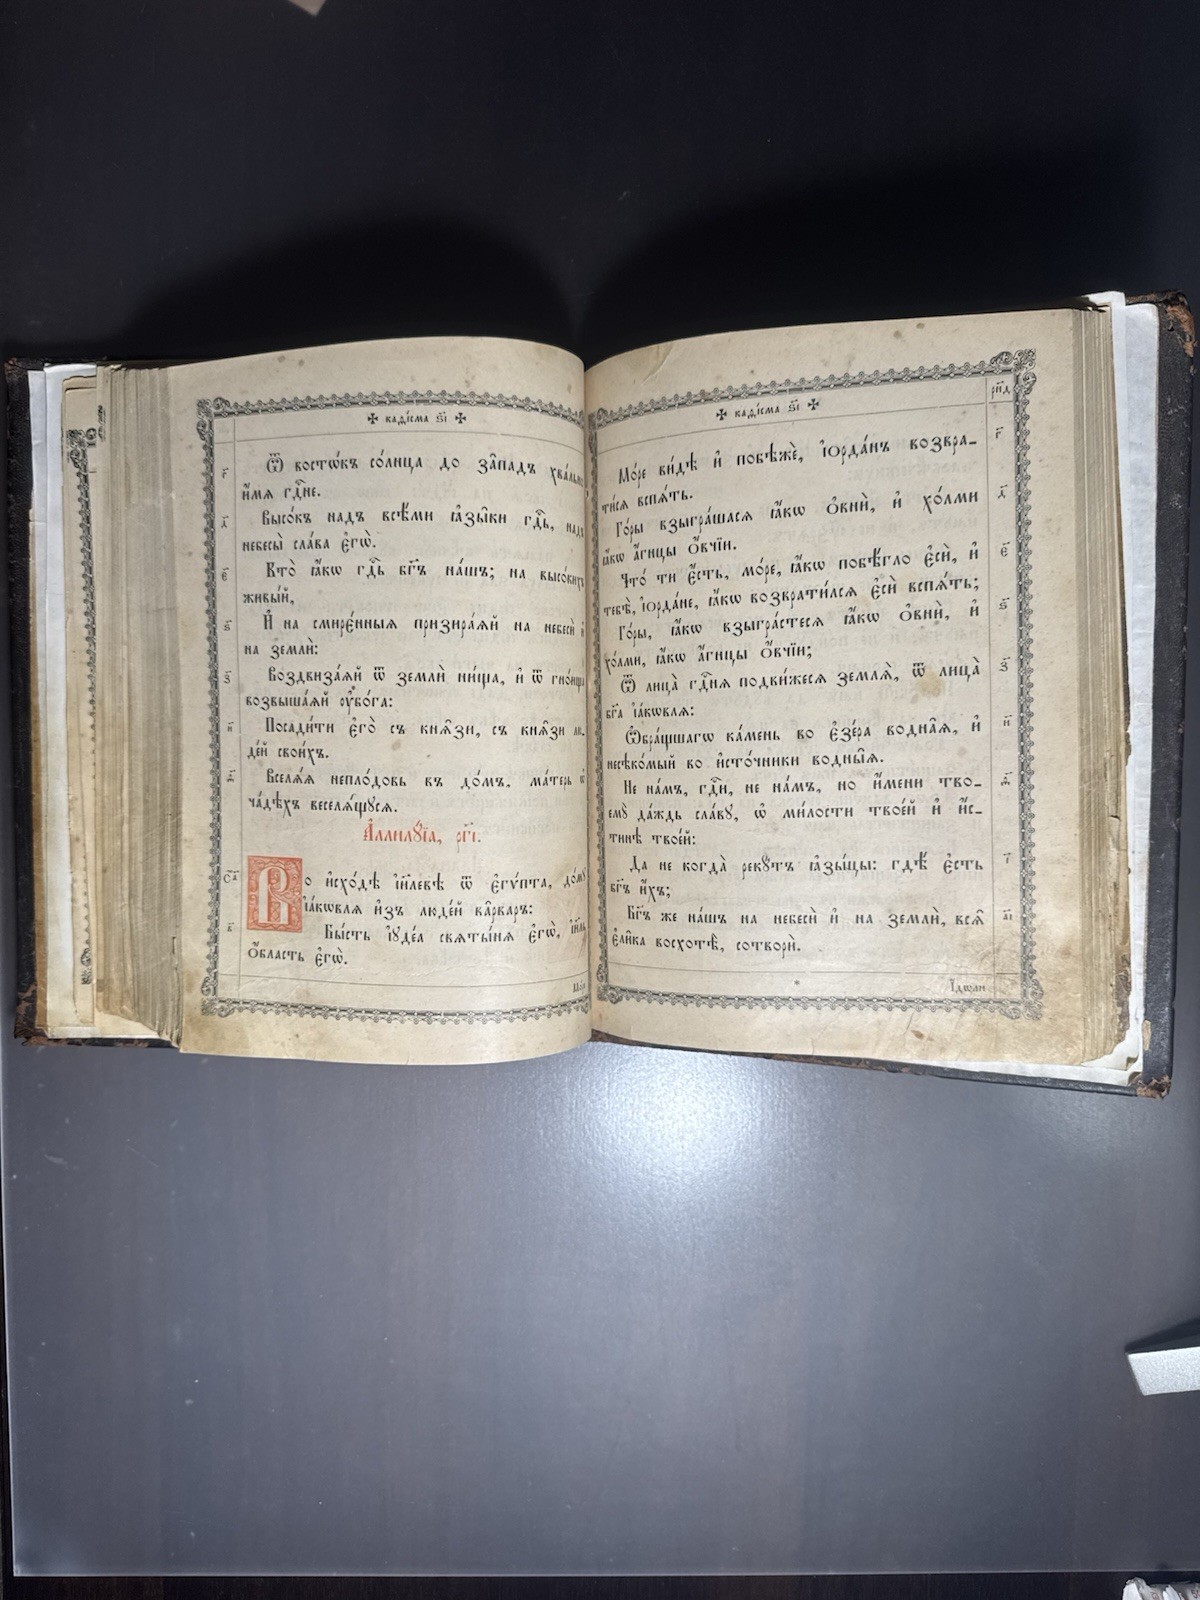 ✠ каді́сма ѕ҃і ✠
г҃
Ѿ восто̑къ со́лнца до за̑падъ хва́льно
и҆́мя гдⷭ҇не.
д҃
Высо́къ надъ все́ми ꙗ҆зы̑ки гдⷭ҇ь, надъ
небесы̀ сла́ва є҆гѡ̀.
є҃
Кто̀ ꙗ҆́кѡ гдⷭ҇ь бг҃ъ на́шъ; на высо́кихъ
живы́й,
ѕ҃
И҆ на смирє́нныѧ призира́ѧй на небесѝ и҆
на землѝ:
з҃
Воздвиза́ѧй ѿ землѝ ни́ща, и҆ ѿ гно́ища
возвыша́ѧй ᲂу҆бо́га:
и҃
Посади́ти є҆го̀ съ кня̑зи, съ кня̑зи лю-
де́й свои́хъ.
ѳ҃
Вселѧ́ѧ непло́довь въ до́мъ, ма́терь ѡ҆
ча́дѣхъ веселѧ́щꙋсѧ.
А҆ллилꙋ́їа, рг҃і.
с҃а
Во и҆схо́дѣ і҆и҃левѣ ѿ є҆гѵ́пта, до́мꙋ
і҆а́кѡвлѧ и҆зъ люде́й ва̑рваръ:
в҃
Бы́сть і҆ꙋде́а свѧты́нѧ є҆гѡ̀, і҆и҃ль
ѻ҆́бласть є҆гѡ̀.
✠ каді́сма ѕ҃і ✠
рн҃д
г҃
Мо́ре ви́дѣ и҆ побѣжѐ, і҆ѻрда́нъ возвра-
ти́сѧ вспѧ́ть.
д҃
Го́ры взыгра́шасѧ ꙗ҆́кѡ ѻ҆внѝ, и҆ хо́лми
ꙗ҆́кѡ а҆́гнцы ѻ҆́вчїи.
є҃
Что́ ти є҆́сть, мо́ре, ꙗ҆́кѡ побѣ́гло є҆сѝ, и҆
тебѣ̀, і҆ѻрда́не, ꙗ҆́кѡ возврати́лсѧ є҆сѝ вспѧ́ть;
ѕ҃
Го́ры, ꙗ҆́кѡ взыгра́стесѧ ꙗ҆́кѡ ѻ҆внѝ, и҆
хо́лми, ꙗ҆́кѡ а҆́гнцы ѻ҆́вчїи;
з҃
Ѿ лица̀ гдⷭ҇нѧ подви́жесѧ землѧ̀, ѿ лица̀
бг҃а і҆а́кѡвлѧ:
и҃
Ѡ҆бра́щшагѡ ка́мень во є҆зє́ра вѡднаѧ, и҆
несѣко́мый во и҆сто́чники вѡдны́ѧ.
ѳ҃
Не на́мъ, гдⷭ҇и, не на́мъ, но и҆́мени тво-
емꙋ̀ да́ждь сла́вꙋ, ѡ҆ ми́лости твое́й и҆ и҆́с-
тинѣ твое́й:
і҃
Да не когда̀ рекꙋ́тъ ꙗ҆зы́цы: гдѣ̀ є҆́сть
бг҃ъ и҆́хъ;
а҃і
Бг҃ъ же на́шъ на небесѝ и҆ на землѝ, всѧ̑
є҆ли̑ка восхотѣ̀, сотворѝ.
І҆́дѡли